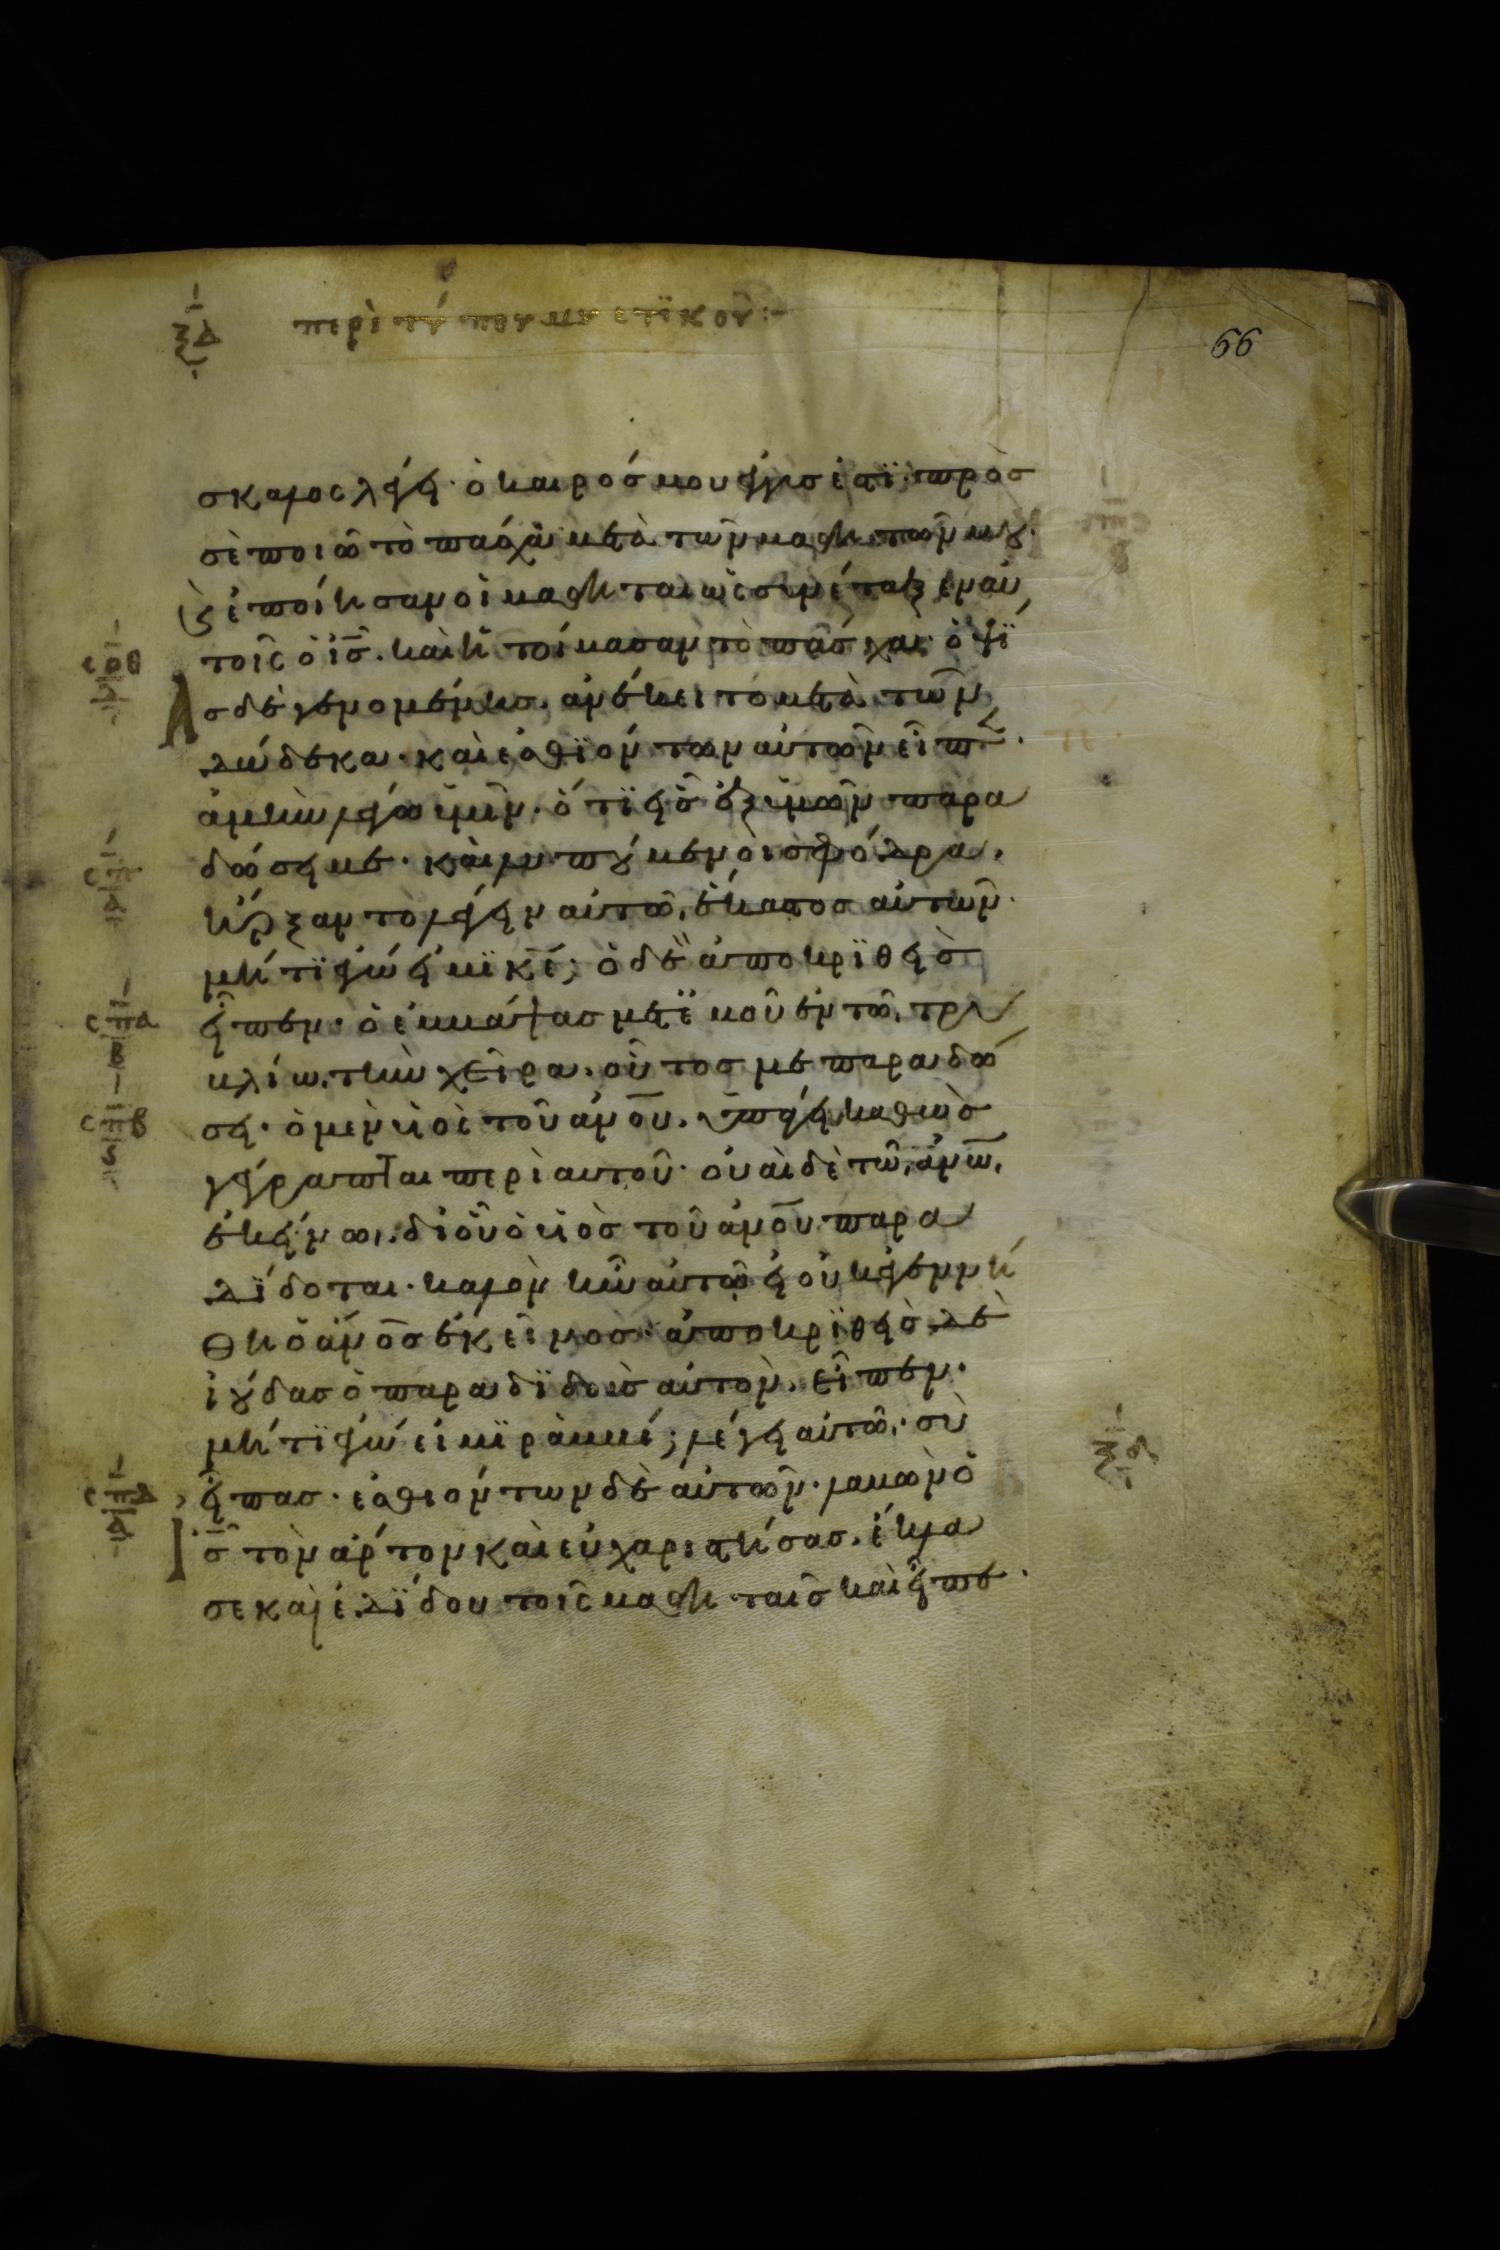 ξδ
περὶ τοῦ τύπου τοῦ μυστϊκοῦ:-
66
σκαλος λέγει· ὁ καιρόσ μου ἐγγύσ ἐστϊ· πρὸσ
σὲ ποιῶ τὸ πάσχα μετὰ τῶν μαθητῶν μου·
ϛ ἐποίησαν οἱ μαθηταὶ ὡς συνέταξεν αὐ
τοῖς ὁ ἰς̅. καὶ ἡτοίμασαν τὸ πάσχα· ὀψΐ
σοθ
δ
ασ δὲ γενομένησ. ἀνέκειτο μετὰ τῶν
δώδεκα· καὶ ἐσθϊόντων αὐτῶν εἶπεν·
ἀμὴν λέγω ὑμῖν· ὅτϊ εἷσ ἐξ ὑμῶν παρα
σπ
δ
δώσει με· καὶ λυπούμενοι σφόδρα.
ἤρξαντο λέγειν αὐτῶ. ἕκαστοσ αὐτῶν·
μήτϊ ἐγώ εἰμϊ κε̅; ὁ δὲ ἀποκρϊθεὶσ
σπα
β
εἶπεν· ὁ ἐμβάψασ μετ' ἐμοῦ ἐν τῶ τρυ
βλίω τὴν χεῖρα. οὗτοσ με παραδώ
σπβ
ϛ
σει· ὁ μὲν υἱὸς τοῦ ἀνου̅. ὑπάγει καθὼσ
γέγραπται περὶ αυτοῦ· οὐαὶ δὲ τῶ ἀνω̅.
ἐκείνω. δι' οὗ ὁ υἱὸσ τοῦ ἀνου̅ παρα
δΐδοται· καλὸν ἦν αὐτῶ εἰ οὐκ ἐγεννή
θη ὁ ἀνοσ̅ ἐκεῖνοσ· ἀποκρϊθεὶσ δὲ
ἰούδασ ὁ παραδϊδοὺσ αὐτὸν. εἶπεν·
μήτϊ ἐγώ εἰμϊ ῥαββί; λέγει αὐτῶ· σὺ
σπδ
α
εἶπασ· ἐσθιόντων δὲ αὐτῶν· λαβὼν ὁ
ἰσ̅ τὸν ἄρτον καὶ εὐχαριστήσασ. ἔκλα
σε καὶ ἐδΐδου τοῖς μαθηταῖσ καὶ εἶπε·